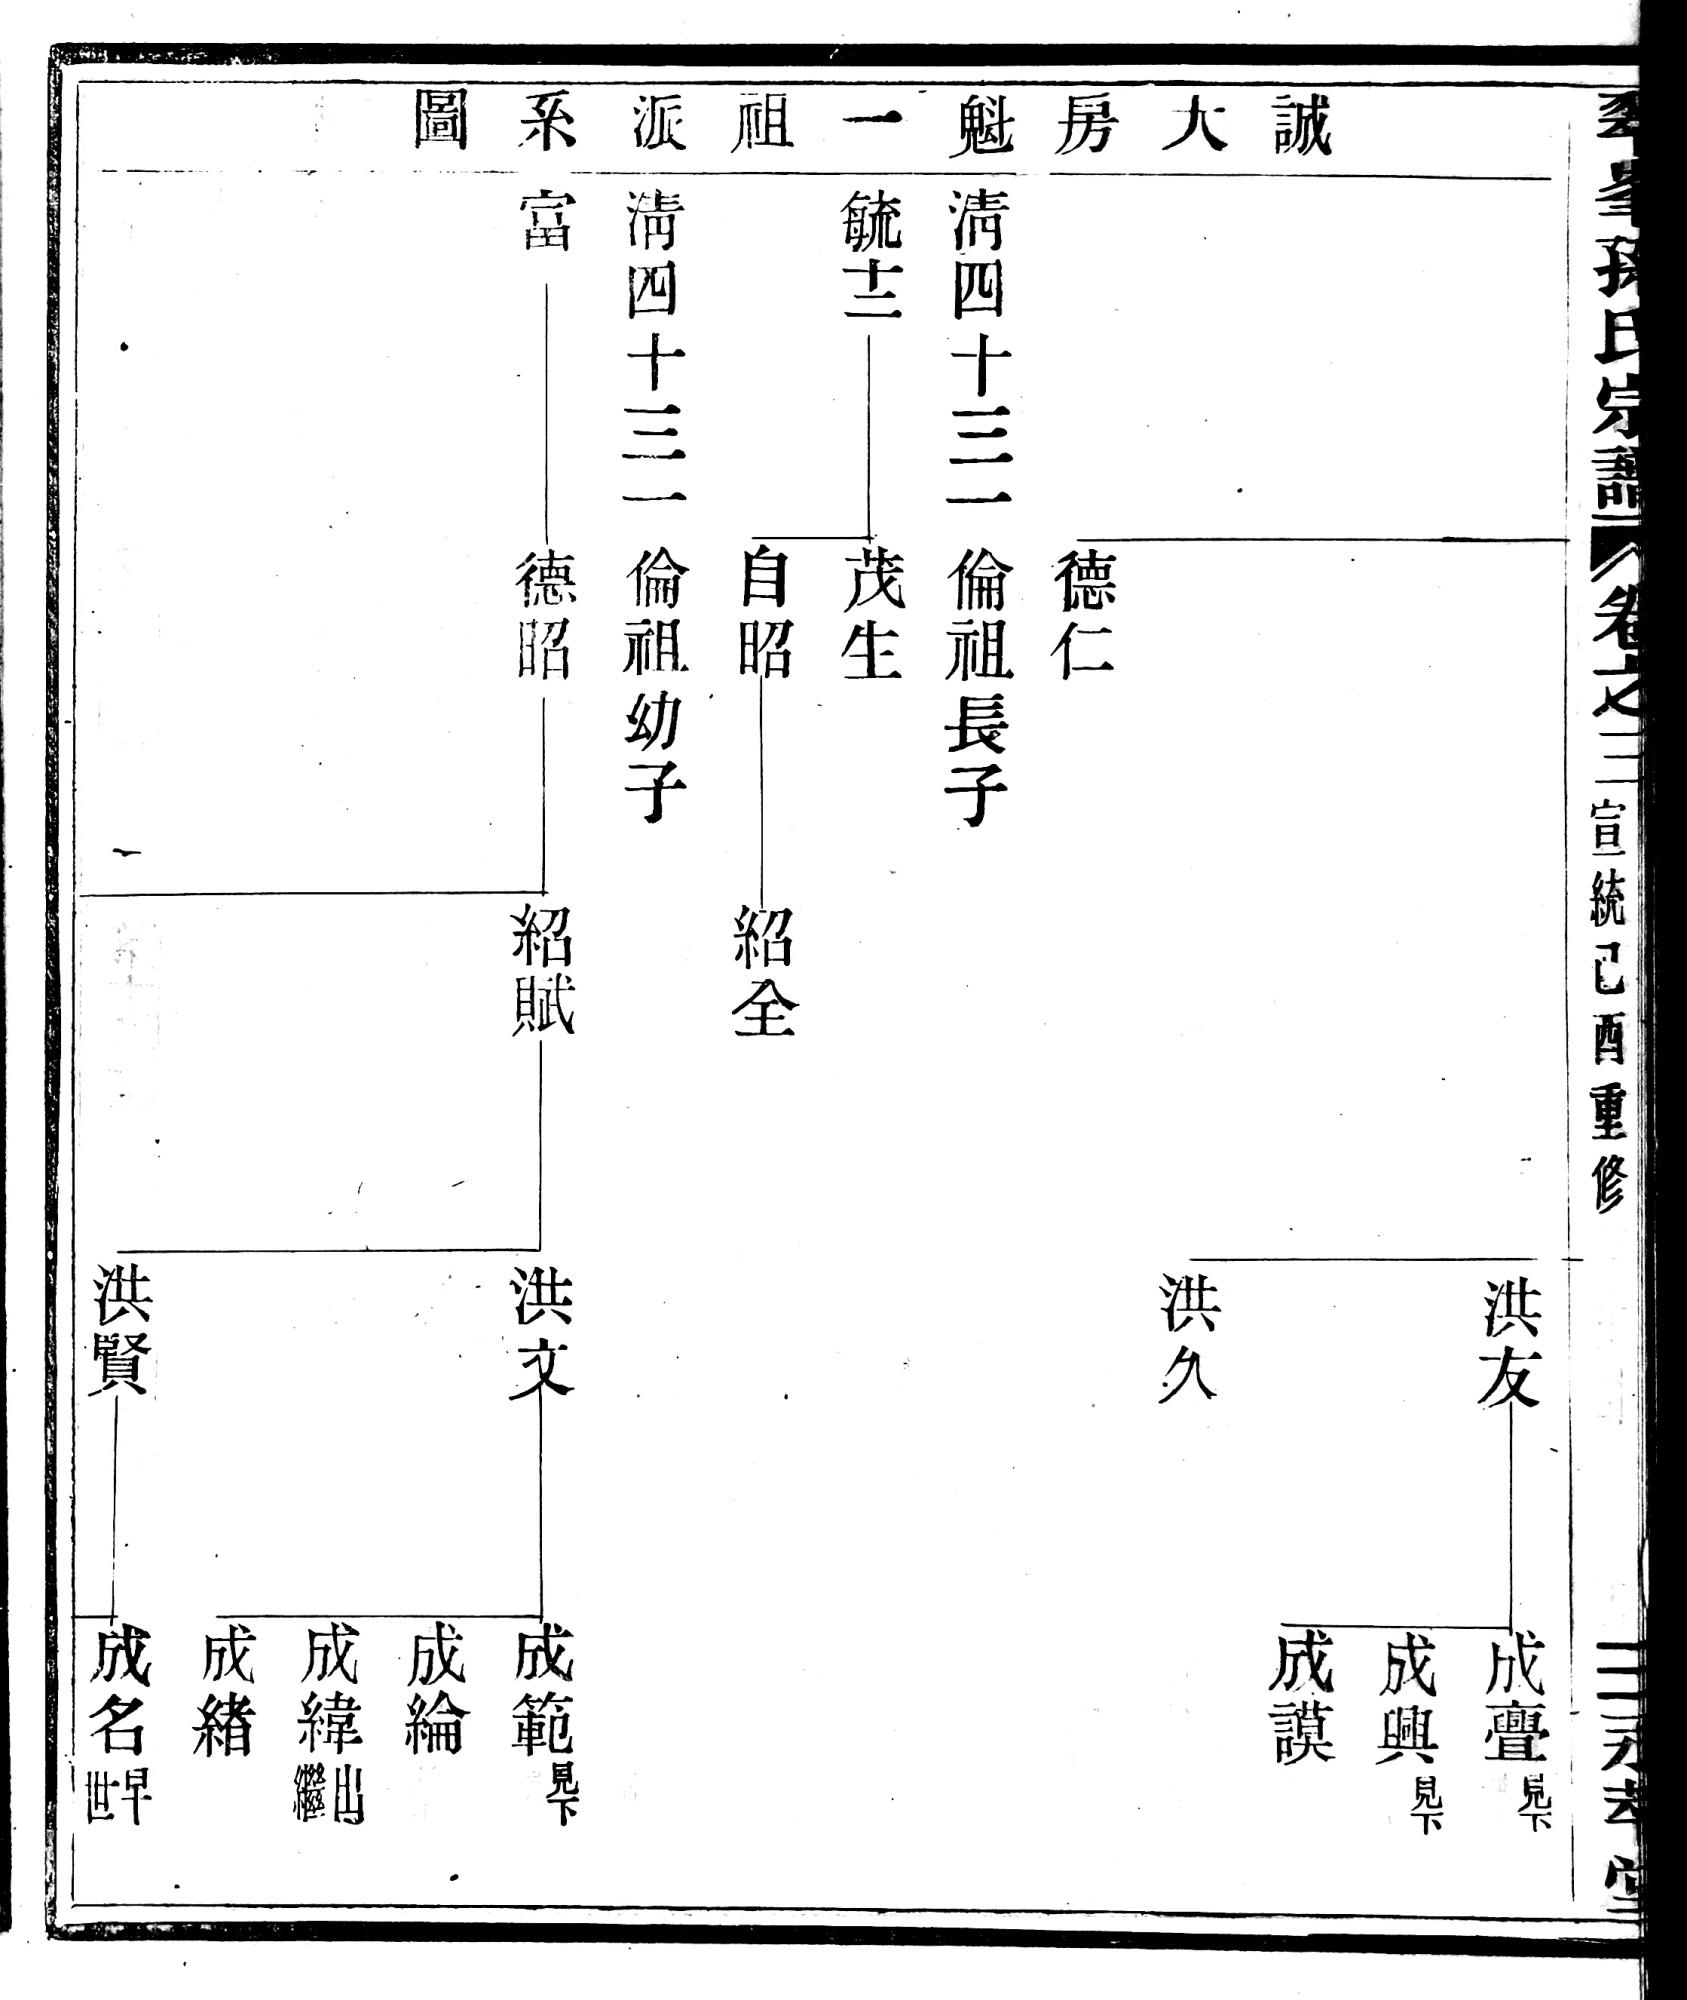 孫氏宗譜
卷之三
宣統己酉重修
誠大房魁一祖派系圖
洪友
成亹見下
成興見下
成謨
洪久
德仁
淸四十三一
倫祖長子
毓十二
茂生
自昭
紹全
淸四十三一
倫祖幼子
富
德昭
紹賦
洪文
成範見下
成綸
成緯出繼
成緒
洪賢
成名早世